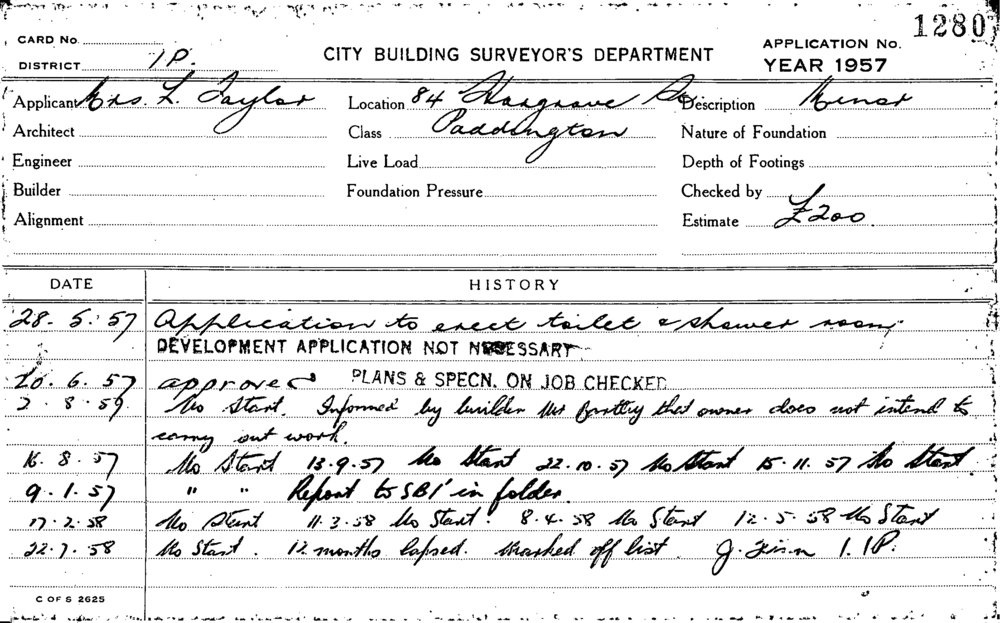 1280
CARD No.
CITY BUILDING SURVEYOR'S DEPARTMENT
APPLICATION No.
DISTRICT 1P.
YEAR 1957
Applicant Mrs. L. Taylor Location 84 Hargrave St. Description Minor
Architect Class Paddington Nature of Foundation
Engineer Live Load Depth of Footings
Builder Foundation Pressure Checked by
Alignment Estimate £200.
DATE HISTORY
28. 5. 57 Application to erect toilet & shower room
DEVELOPMENT APPLICATION NOT NECESSARY
20. 6. 57 approved PLANS & SPECN. ON JOB CHECKED
2. 8. 57 No Start. Informed by builder Mr that owner does not intend to
carry out work.
16. 8. 57 No Start 13.9.57 No Start 22.10.57 No Start 15.11.57 No Start
9. 1. 57 " " Report to SBI in folder.
17. 2. 58 No Start 11.3.58 No Start. 8.4.58 No Start 12.5.58 No Start
22. 7. 58 No Start. 12 months lapsed. Marked off list J. 1.1P.
C OF S 2625